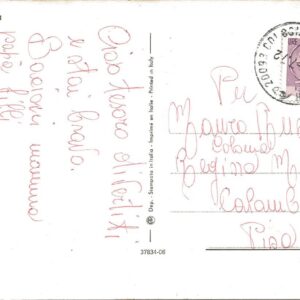 Ciao tesoro divertiti
e stai brava.
Bacioni mamma
papà
Dep. - Stampato in Italia - Imprimé en Italie - Printed in Italy
37834-06
20093 CO
Per
Maura
Colonia
Regina M
Calamb
Pisa